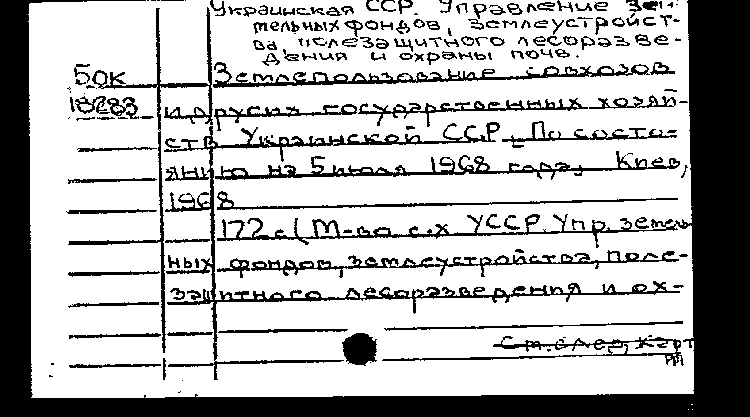 Украинская ССР. Управление зем-
тельных фондов, землеустройст-
ва полезащитного лесоразве-
дения и охраны почв.
Бок Землепользование совхозов
18283 и других государственных хозяй-
ств Украинской ССР. По состо-
янию на 5 июля 1968 года, Киев,
1968
172 с. (М-во с.х УССР. Упр. земель
ных фондов, землеустройства, поле-
защитного лесоразведения и ох-
См. след. карт